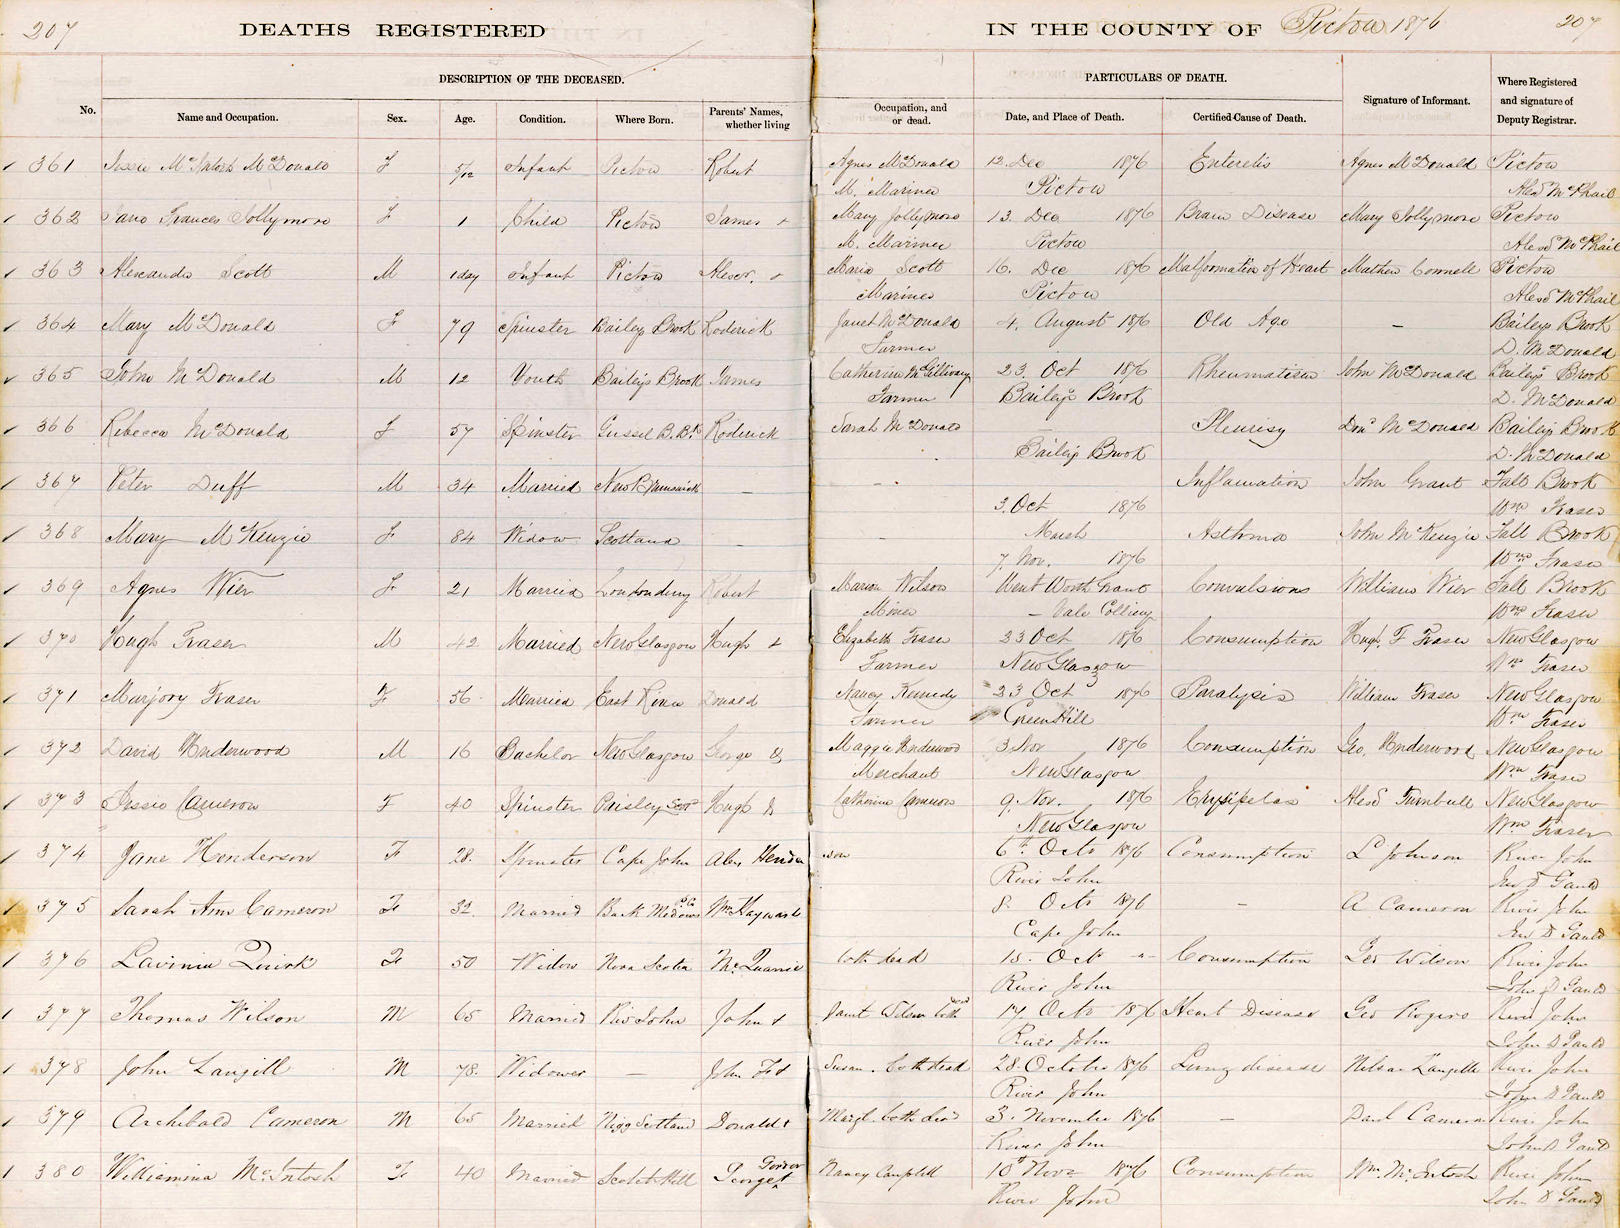 207
DEATHS REGISTERED
IN THE COUNTY OF Pictou 1876
207
DESCRIPTION OF THE DECEASED.
PARTICULARS OF DEATH.
No.
Name and Occupation.
Sex.
Age.
Condition.
Where Born.
Parents' Names, whether living
Occupation, and or dead.
Date, and Place of Death.
Certified Cause of Death.
Signature of Informant.
Where Registered and signature of Deputy Registrar.
361 McDonald F 5/12 Infant Pictou Robert Agnes McDonald 12. Dec 1876 Enteretis Agnes McDonald Pictou
M. Mariner Pictou Alexd McPhail
362 Jane Frances Jollymore F 1 Child Pictou James + Mary Jollymore 13. Dec 1876 Brain Disease Mary Jollymore Pictou
M. Mariner Pictou Alexd McPhail
363 Alexander Scott M 1 day Infant Pictou Alexr. + Maria Scott 16. Dec 1876 Malformation of Heart Mathew Connell Pictou
Mariner Pictou Alexd McPhail
364 Mary McDonald F 79 Spinster Baileys Brook Roderick Janet McDonald 4. August 1876 Old Age – Baileys Brook
Farmer D. McDonald
365 John McDonald M 12 Youth Baileys Brook James Catherine McGillivray 23 Oct 1876 Rheumatism John McDonald Baileys Brook
Farmer Baileys Brook D. McDonald
366 Rebecca McDonald F 57 Spinster B. Bk Roderick Sarah McDonald – Pleurisy Dond McDonald Baileys Brook
Baileys Brook D. McDonald
367 Peter Duff M 34 Married New Brunswick – – Inflamation John Grant Fall Brook
3. Oct 1876 Wm Fraser
368 Mary McKenzie F 84 Widow Scotland – – Marsh Asthma John McKenzie Fall Brook
7. Nov. 1876 Wm Fraser
369 Agnes Wier F 21 Married Londonderry Robert Marion Wilson Went Worth Grant Convulsions William Wier Fall Brook
Miner – Vale Colliery Wm Fraser
370 Hugh Fraser M 42 Married New Glasgow Hugh + Elizabeth Fraser 23 Oct 1876 Consumption Hugh F Fraser New Glasgow
Farmer New Glasgow Wm Fraser
371 Marjory Fraser F 56 Married East River Donald Nancy Kennedy 23 Oct 1876 Paralysis William Fraser New Glasgow
Farmer Green Hill Wm Fraser
372 David Underwood M 16 Bachelor New Glasgow George & Maggie Underwood 3 Nov 1876 Consumption Geo. Underwood New Glasgow
Merchant New Glasgow Wm Fraser
373 Jessie Cameron F 40 Spinster Paisley Scot Hugh & Catherine Cameron 9. Nov. 1876 Erysipelas Alexd Turnbull New Glasgow
New Glasgow Wm Fraser
374 Jane Henderson F 28. Spinster Cape John Alex Hender son 6th Octo 1876 Consumption L Johnson River John
River John Jno D Gauld
375 Sarah Ann Cameron F 32 Married Back Medows Wm Hayward 8. Octo 1876 – A Cameron River John
Cape John Jno D Gauld
376 Lavinia Quirk F 50 Widow Nova Scotia McQuarrie both dead 15. Oct -"- Consumption Geo Wilson River John
River John John D Gauld
377 Thomas Wilson M 65 Married Riv John John + Janet Wilson both dead 17. Octo 1876 Heart Disease Geo Rogers River John
River John John D Gauld
378 John Langill M 78. Widower – John F + Susan. both dead 28. October 1876 Lung disease Nelson Langille River John
River John John D Gauld
379 Archibald Cameron M 65 Married Nigg Scotland Donald + Margt. both dead 3. November 1876 – Danl Cameron River John
River John John D Gauld
380 Williamina McIntosh F 40 Married Scotch Hill George + Nancy Campbell 10th Novr 1876 Consumption Wm McIntosh River John
River John John D Gauld